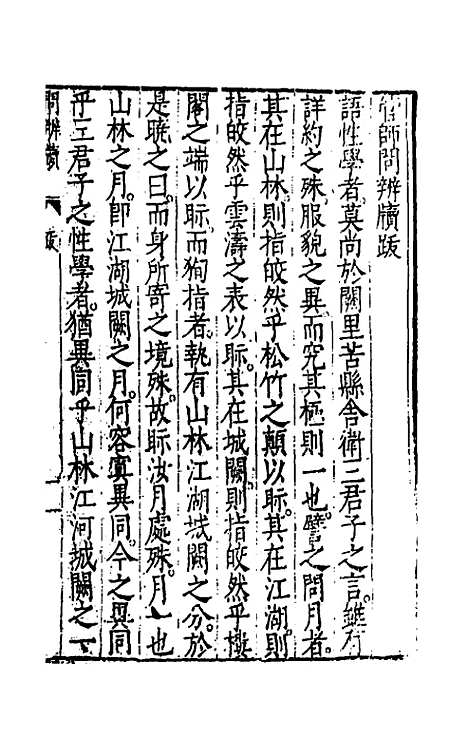 管師問辨牘跋
語性學者莫尚於闕里苦縣舍衛三君子之言雖有
詳約之殊服貌之異而究其極則一也譬之問月者
其在山林則指皎然乎松竹之顛以眎其在江湖則
指皎然乎雲濤之表以眎其在城闕則指皎然乎樓
閣之端以眎而狥指者執有山林江湖城闕之分於
是曉之曰而身所寄之境殊故眎汝月處殊月一也
山林之月即江湖城闕之月何容寘異同今之異同
乎三君子之性學者猶異同乎山林江河城闕之
問辨牘
跋
一